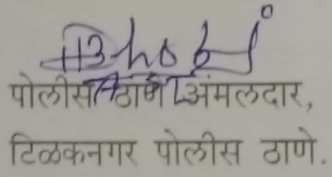 पोलीस ठाणे अंमलदार,
टिळकनगर पोलीस ठाणे.